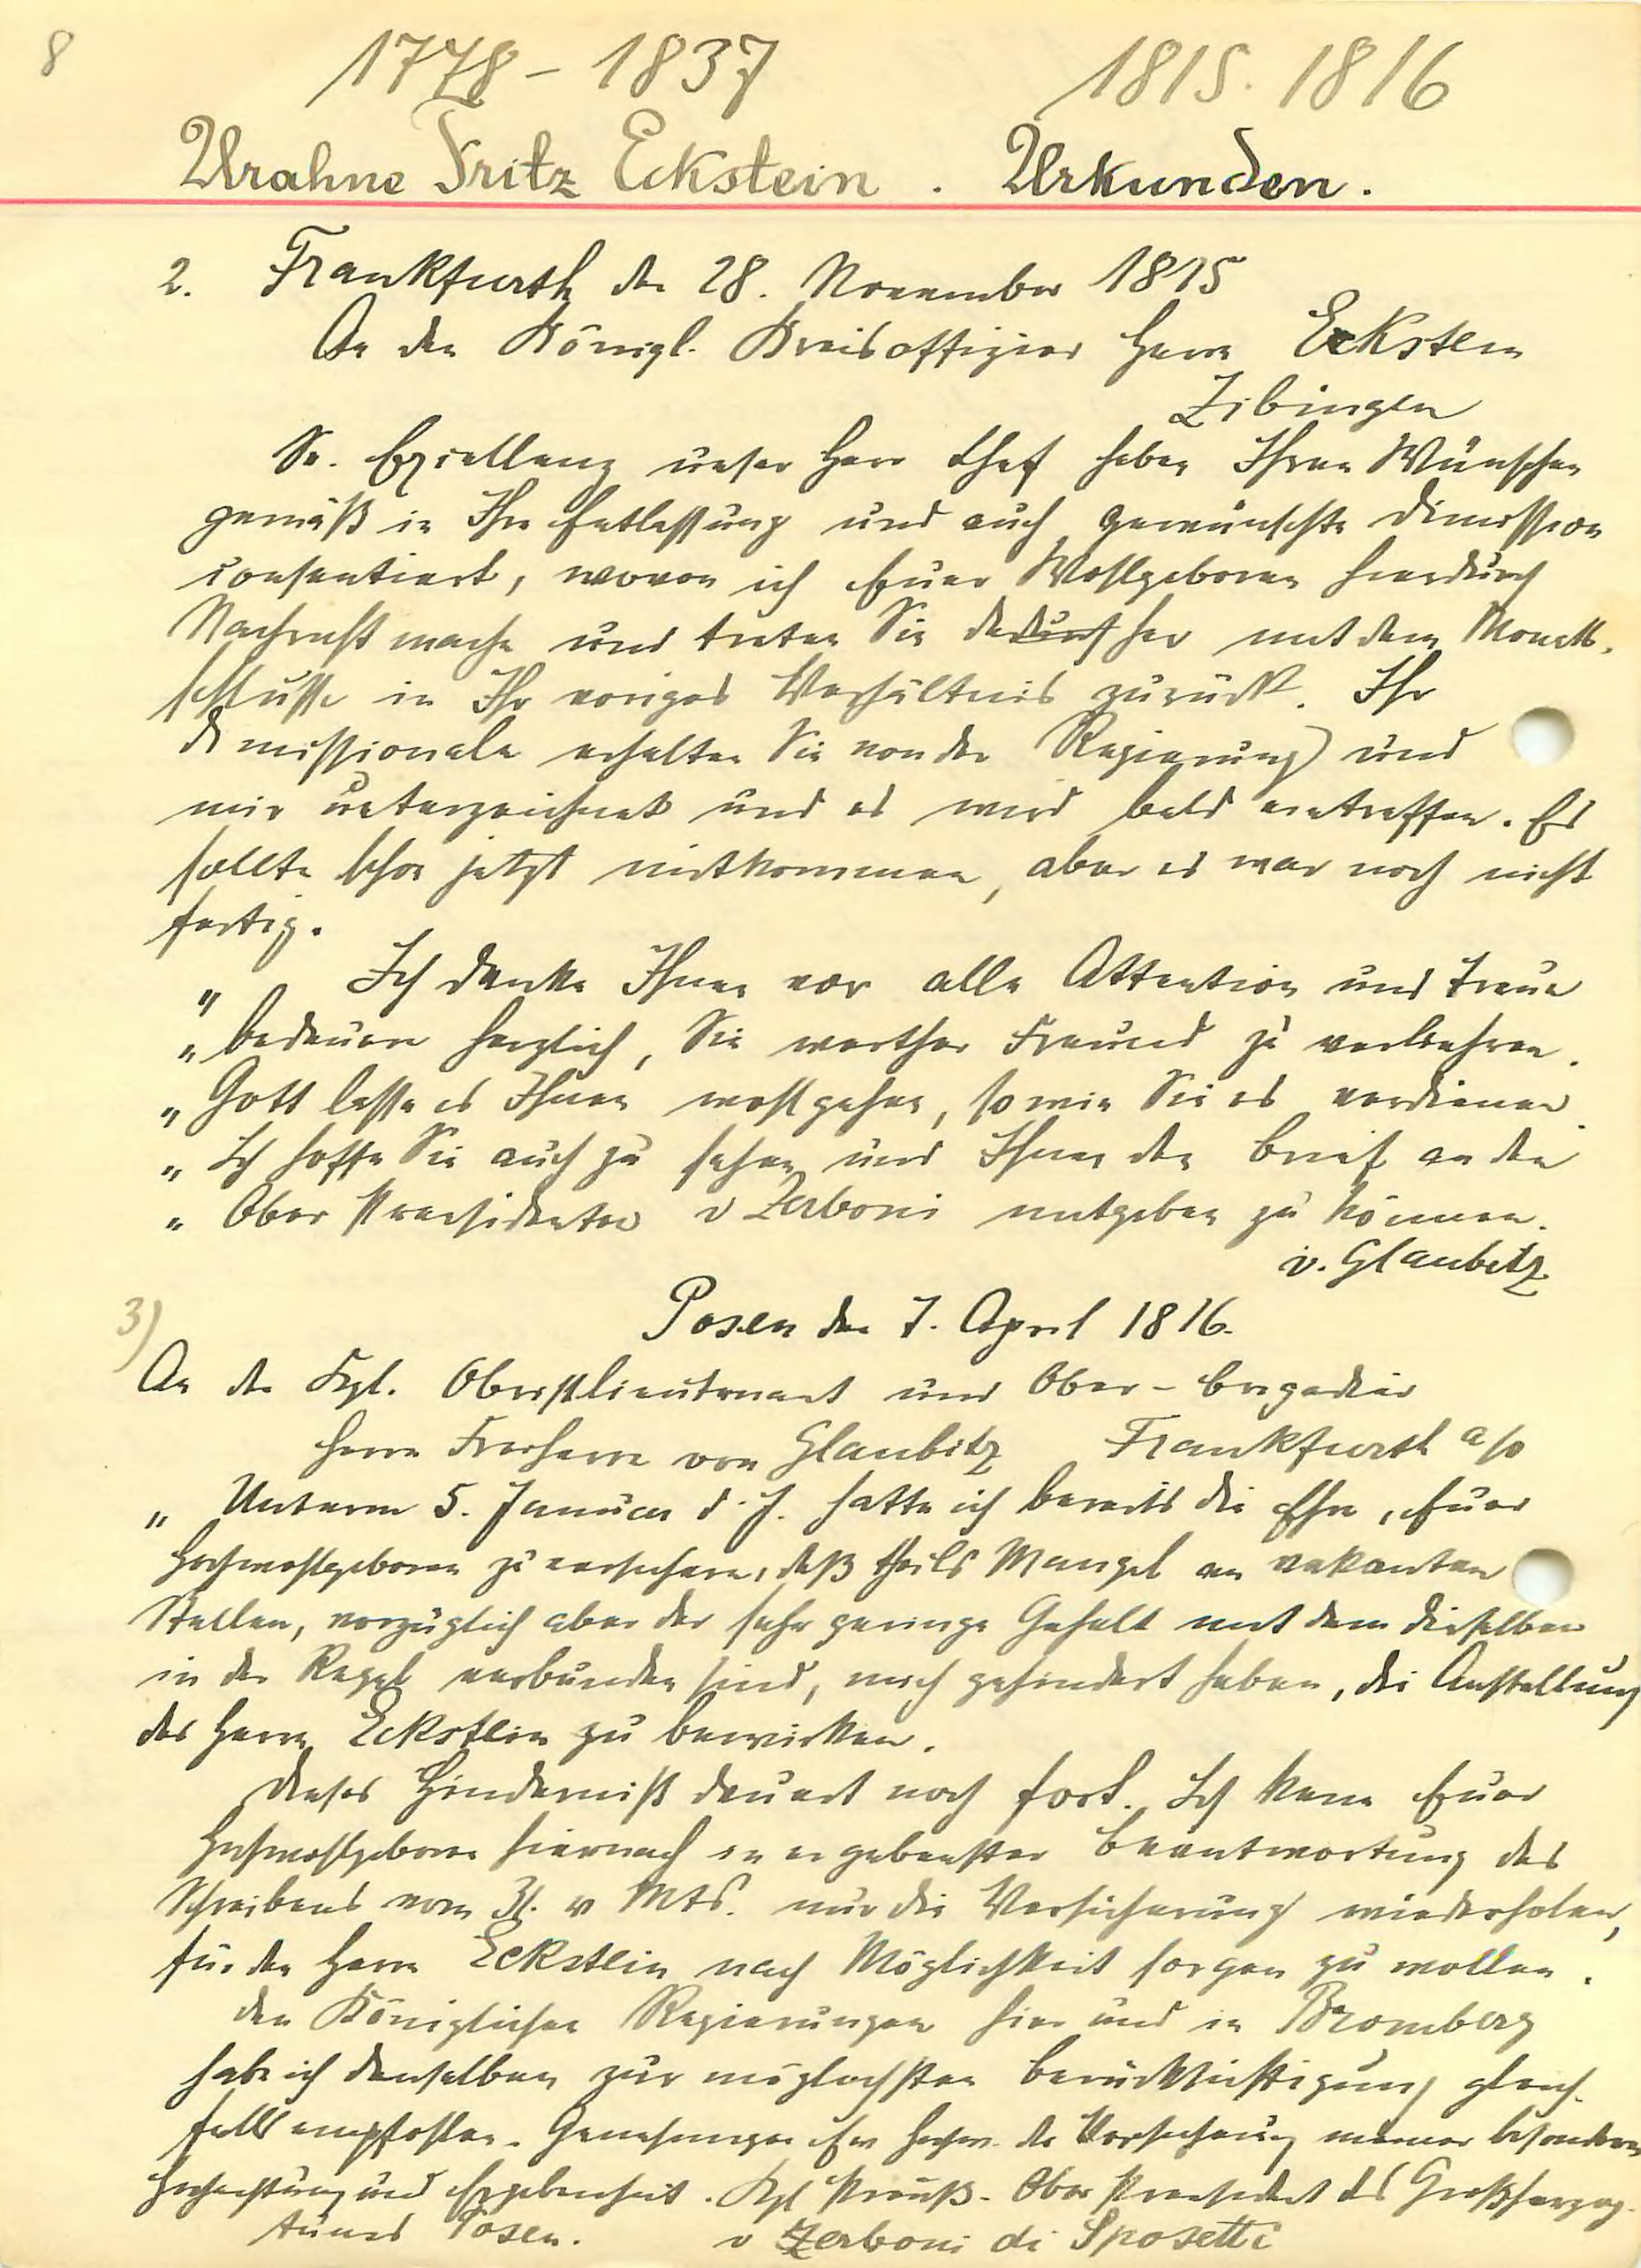 8
1778 – 1837 1815. 1816
Urahne Fritz Eckstein . Urkunden.
2. Frankfurth den 28. November 1815
An den Königl. Kreisoffizier Herrn Eckstein
Zibingen
Sr. Excellenz unser Herr Chef haben Ihren Wünschen
gemäß in Ihre Entlassung und auch gewünschte Dimission
consentiert, wovon ich Euer Wohlgeboren hierdurch
Nachricht mache und treten Sie daher mit dem Monats-
schlusse in Ihr voriges Verhältnis zurück. Ihr
Dimissionale erhalten Sie von der Regierung und
mir unterzeichnet und es wird bald eintreffen. Es
sollte schon jetzt mitkommen, aber es war noch nicht
fertig.
„ Ich danke Ihnen vor alle Attention und Treue
„ bedauere herzlich, Sie werther Freund zu verliehren.
„ Gott lasse es Ihnen wohlgehen, so wie Sie es verdienen.
„ Ich hoffe Sie auch zu sehen und Ihnen den Brief an den
„ Ober Praesidenten v Zerboni mitgeben zu können.
v. Glaubitz.
3) Posen den 7. April 1816.
An den Kgl. Oberstlieutenant und Ober-Brigadier
Herrn Freiherrn von Glaubitz Frankfurth a/o
„ Unterm 5. Januar d. J. hatte ich bereits die Ehre, Euer
Hochwohlgeboren zu versichern, daß theils Mangel an vakanten
Stellen, vorzüglich aber der sehr geringe Gehalt mit dem dieselben
in der Regel verbunden sind, mich gehindert haben, die Anstellung
des Herrn Eckstein zu bewirken.
Dieses Hinderniß dauert noch fort. Ich kann Euer
Hochwohlgeboren hiernach in ergebenster Beantwortung des
Schreibens vom 31. v Mts. nur die Versicherung wiederholen,
für den Herrn Eckstein nach Möglichkeit sorgen zu wollen.
Den Königlichen Regierungen hier und in Bromberg
habe ich denselben zur möglichsten Berücksichtigung gleich-
falls empfohlen. Genehmigen Ew Hochw. die Versicherung meiner besonderen
Hochachtung und Ergebenheit. Kgl Preuß. Ober Praesident des Großherzog-
tums Posen. v Zerboni di Sposetti